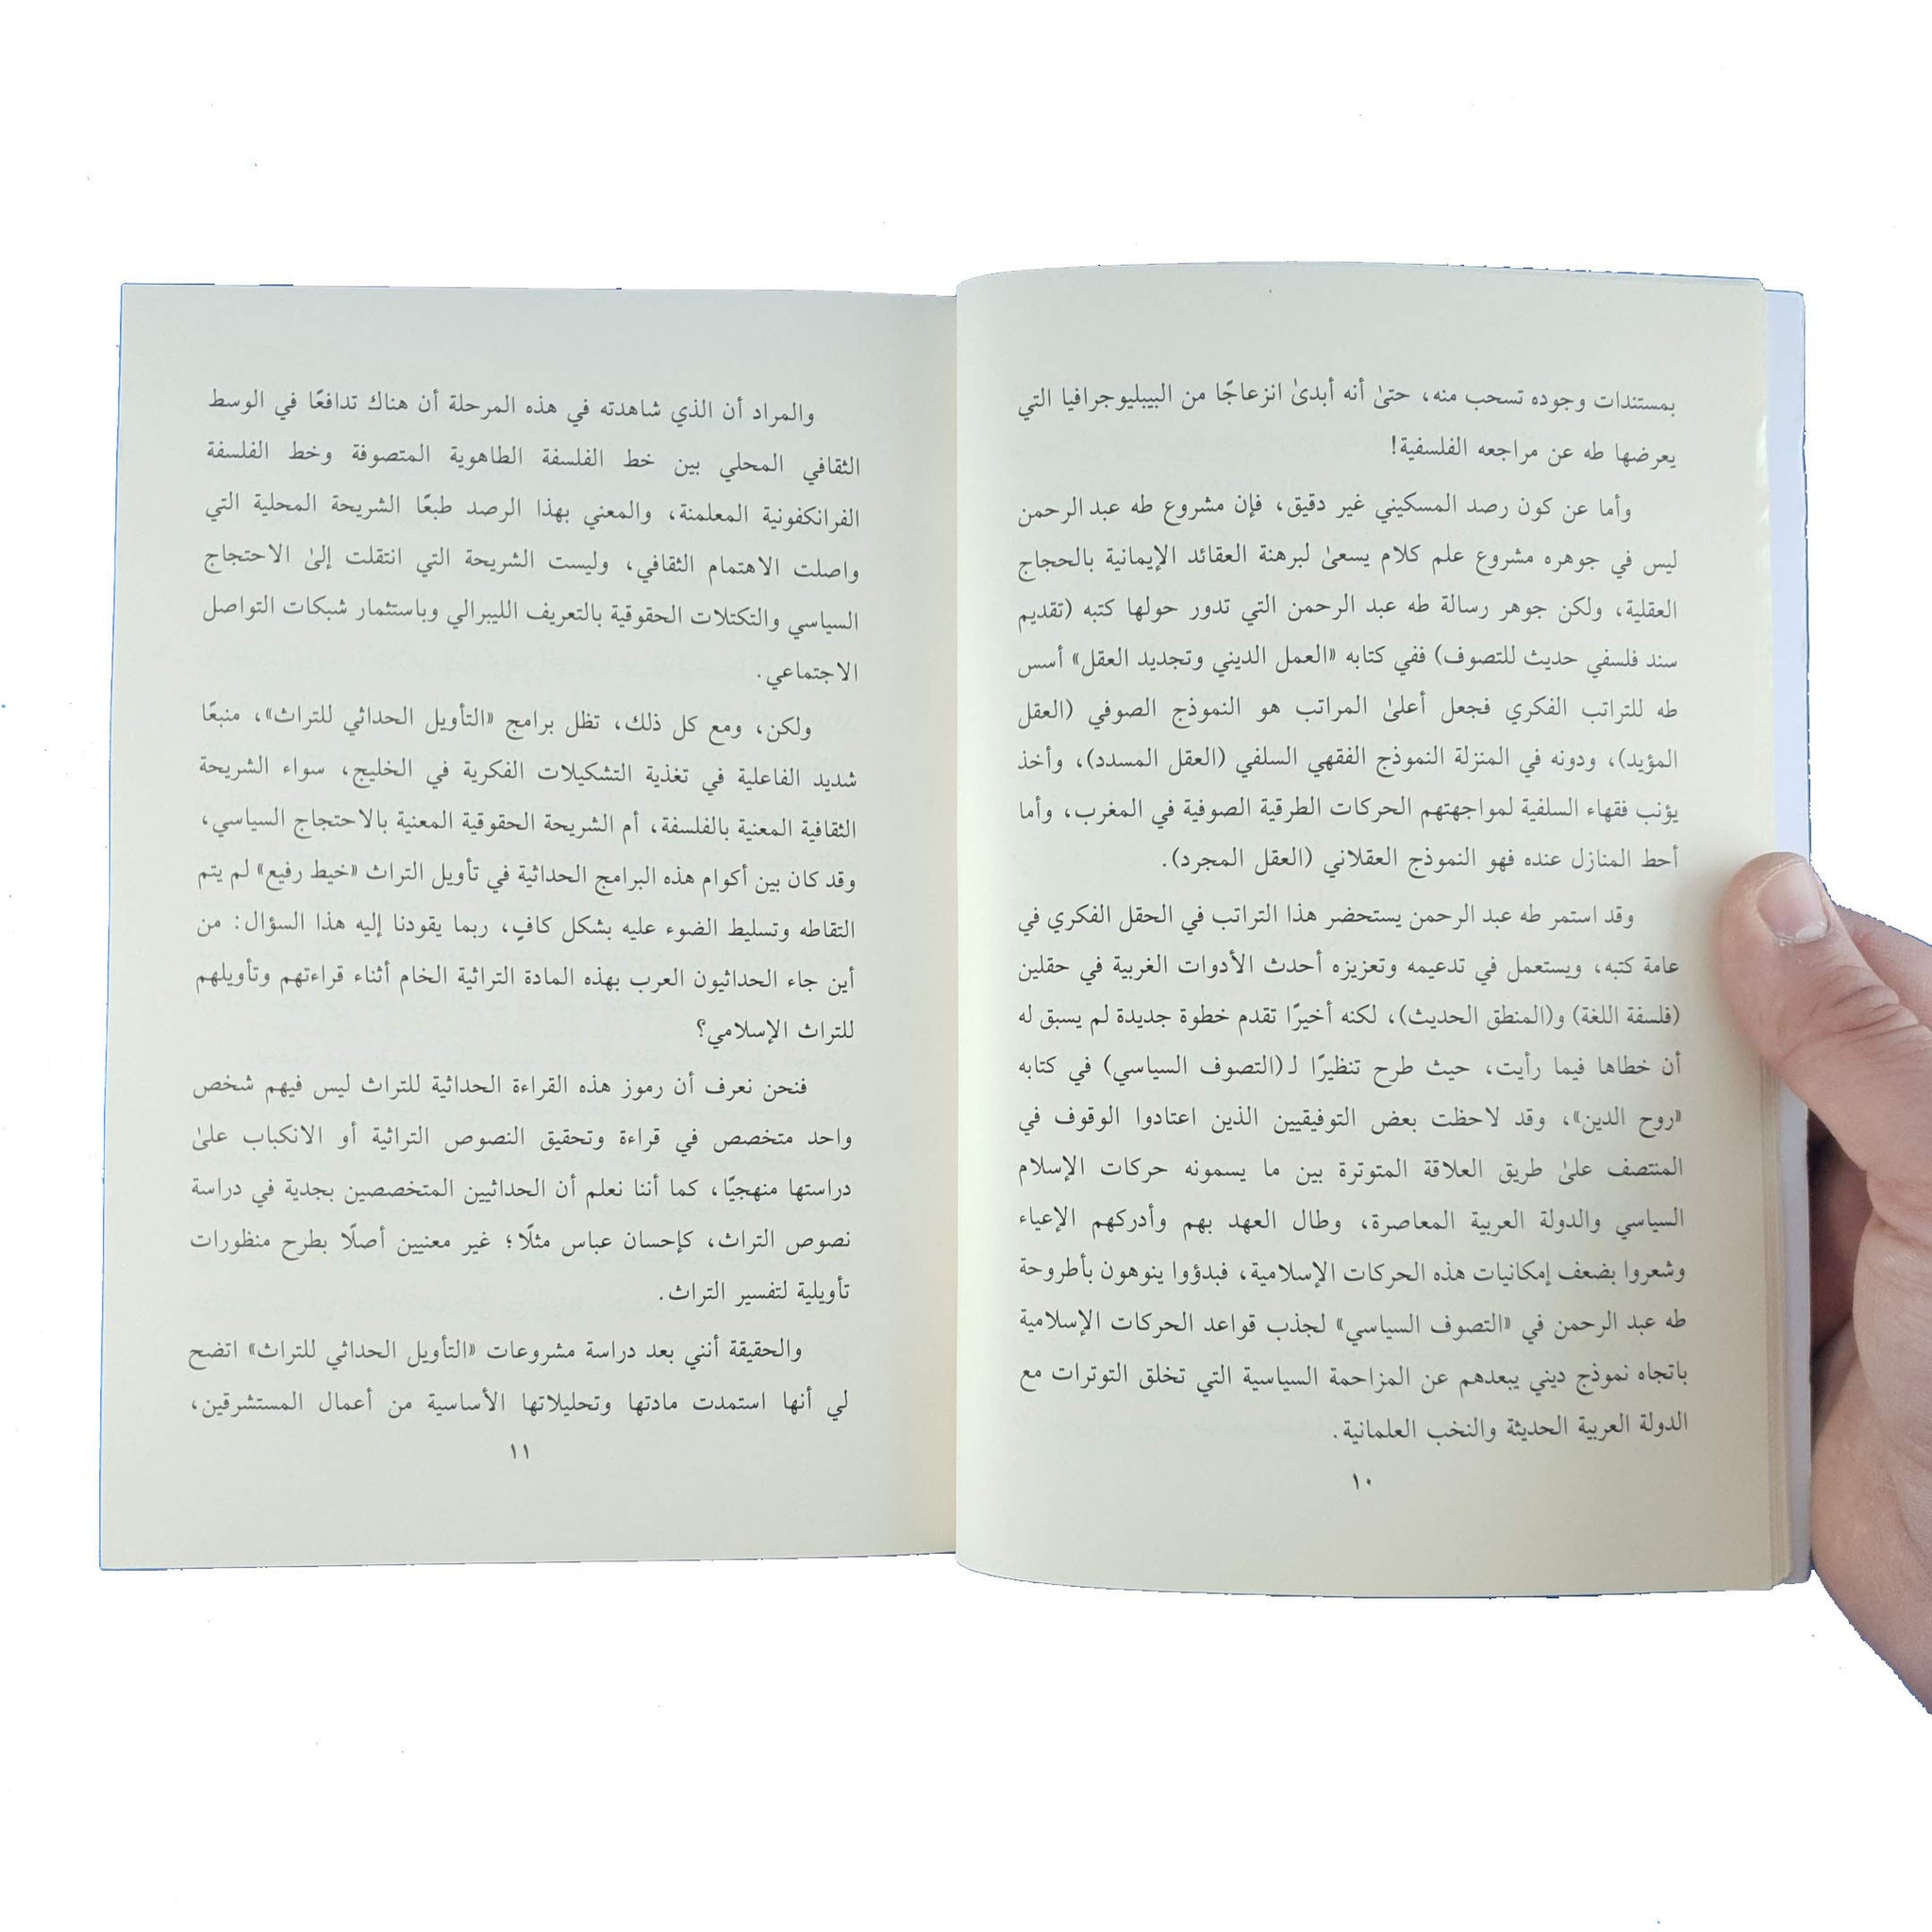 بمستندات وجوده تسحب منه، حتىٰ أنه أبدىٰ انزعاجًا من البيبليوجرافيا التي
يعرضها طه عن مراجعه الفلسفية!
وأما عن كون رصد المسكيني غير دقيق، فإن مشروع طه عبد الرحمن
ليس في جوهره مشروع علم كلام يسعىٰ لبرهنة العقائد الإيمانية بالحجاج
العقلية، ولكن جوهر رسالة طه عبد الرحمن التي تدور حولها كتبه (تقديم
سند فلسفي حديث للتصوف) ففي كتابه «العمل الديني وتجديد العقل» أسس
طه للتراتب الفكري فجعل أعلىٰ المراتب هو النموذج الصوفي (العقل
المؤيد)، ودونه في المنزلة النموذج الفقهي السلفي (العقل المسدد)، وأخذ
يؤنب فقهاء السلفية لمواجهتهم الحركات الطرقية الصوفية في المغرب، وأما
أحط المنازل عنده فهو النموذج العقلاني (العقل المجرد).
وقد استمر طه عبد الرحمن يستحضر هذا التراتب في الحقل الفكري في
عامة كتبه، ويستعمل في تدعيمه وتعزيزه أحدث الأدوات الغربية في حقلين
(فلسفة اللغة) و(المنطق الحديث)، لكنه أخيرًا تقدم خطوة جديدة لم يسبق له
أن خطاها فيما رأيت، حيث طرح تنظيرًا لـ(التصوف السياسي) في كتابه
«روح الدين»، وقد لاحظت بعض التوفيقيين الذين اعتادوا الوقوف في
المنتصف علىٰ طريق العلاقة المتوترة بين ما يسمونه حركات الإسلام
السياسي والدولة العربية المعاصرة، وطال العهد بهم وأدركهم الإعياء
وشعروا بضعف إمكانيات هذه الحركات الإسلامية، فبدؤوا ينوهون بأطروحة
طه عبد الرحمن في «التصوف السياسي» لجذب قواعد الحركات الإسلامية
باتجاه نموذج ديني يبعدهم عن المزاحمة السياسية التي تخلق التوترات مع
الدولة العربية الحديثة والنخب العلمانية.
١٠
والمراد أن الذي شاهدته في هذه المرحلة أن هناك تدافعًا في الوسط
الثقافي المحلي بين خط الفلسفة الطاهوية المتصوفة وخط الفلسفة
الفرانكفونية المعلمنة، والمعني بهذا الرصد طبعًا الشريحة المحلية التي
واصلت الاهتمام الثقافي، وليست الشريحة التي انتقلت إلىٰ الاحتجاج
السياسي والتكتلات الحقوقية بالتعريف الليبرالي وباستثمار شبكات التواصل
الاجتماعي.
ولكن، ومع كل ذلك، تظل برامج «التأويل الحداثي للتراث»، منبعًا
شديد الفاعلية في تغذية التشكيلات الفكرية في الخليج، سواء الشريحة
الثقافية المعنية بالفلسفة، أم الشريحة الحقوقية المعنية بالاحتجاج السياسي،
وقد كان بين أكوام هذه البرامج الحداثية في تأويل التراث «خيط رفيع» لم يتم
التقاطه وتسليط الضوء عليه بشكل كافٍ، ربما يقودنا إليه هذا السؤال: من
أين جاء الحداثيون العرب بهذه المادة التراثية الخام أثناء قراءتهم وتأويلهم
للتراث الإسلامي؟
فنحن نعرف أن رموز هذه القراءة الحداثية للتراث ليس فيهم شخص
واحد متخصص في قراءة وتحقيق النصوص التراثية أو الانكباب علىٰ
دراستها منهجيًا، كما أننا نعلم أن الحداثيين المتخصصين بجدية في دراسة
نصوص التراث، كإحسان عباس مثلًا؛ غير معنيين أصلًا بطرح منظورات
تأويلية لتفسير التراث.
والحقيقة أنني بعد دراسة مشروعات «التأويل الحداثي للتراث» اتضح
لي أنها استمدت مادتها وتحليلاتها الأساسية من أعمال المستشرقين،
١١